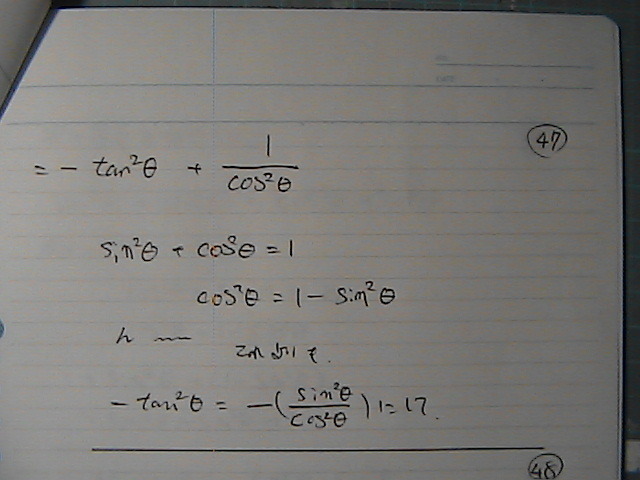 ㊼
= - tan²θ + 1/cos²θ
sin²θ + cos²θ = 1
cos²θ = 1 - sin²θ
- tan²θ = -(sin²θ/cos²θ)
㊽